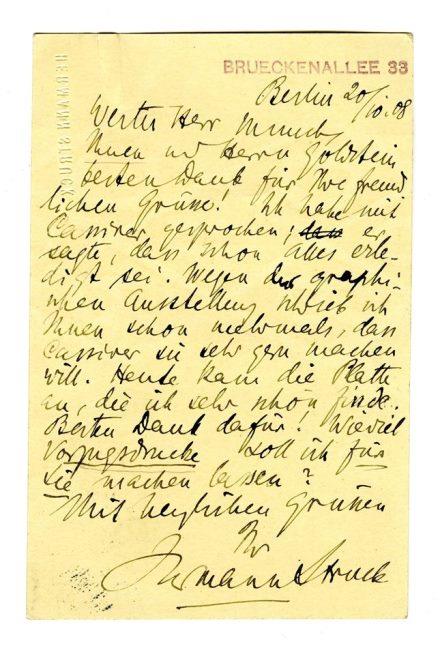 BRUECKENALLEE 33
HERMANN STRUCK
Berlin 20/10.08
Werter Herr Munch,
Ihnen und Herrn Goldstein
besten Dank für Ihre freund
lichen Grüsse! Ich habe mit
Cassirer gesprochen; er
sagte, dass schon alles erle-
digt sei. Wegen der graphi-
schen Ausstellung schrieb ich
Ihnen schon mehrmals, dass
Cassirer sie sehr gern machen
will. Heute kam die Platte
an, die ich sehr schön finde.
Besten Dank dafür! Wieviel
Vorzugsdrucke soll ich für
Sie machen lassen?
Mit herzlichen Grüssen
Ihr
Hermann Struck